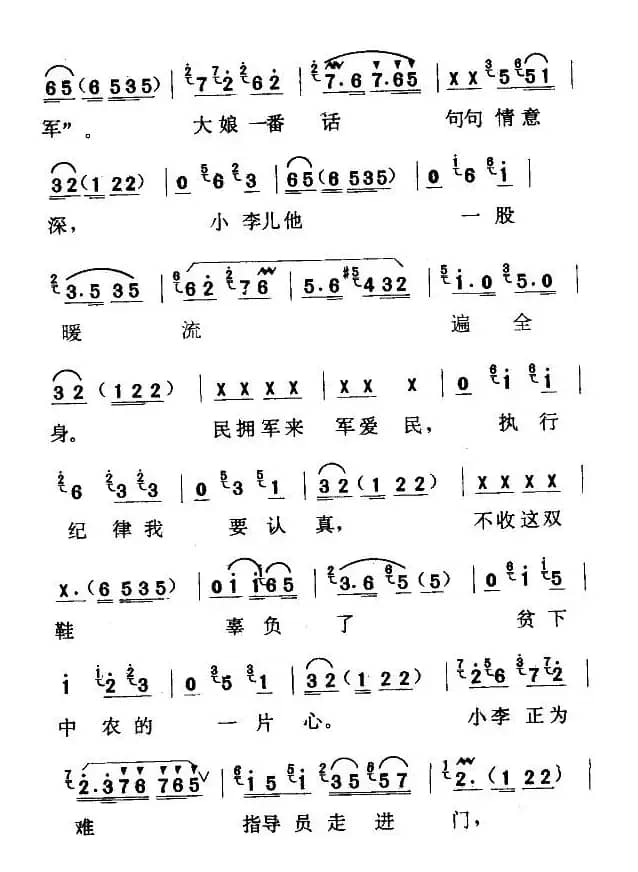 65(6 535) | 77·2 62 | 7.6 7.65 | X X 5 51 |
军”。 大娘一番 话 句句 情意
32(1 22) | 0 6 3 | 65(6 535) | 0 6 i |
深, 小 李儿他 一 股
3.5 35 | 62 76 | 5.6 #432 | i.0 5.0 |
暖 流 遍 全
32 (122) | X X X X | X X X | 0 i i |
身。 民拥军来 军爱 民, 执 行
6 3 3 | 0 3 1 | 32(1 22) | X X X X |
纪 律 我 要 认 真, 不收这双
X.(6 535) | 0 i i65 | 3.6 5(5) | 0 i 5 |
鞋 辜 负 了 贫 下
i 2 3 | 0 5 1 | 32(1 22) | 2 6 7 2 |
中 农 的 一 片 心。 小李 正为
2.376 765 | i 5 i 35 57 | 2.(1 22) |
难 指导 员 走 进 门,